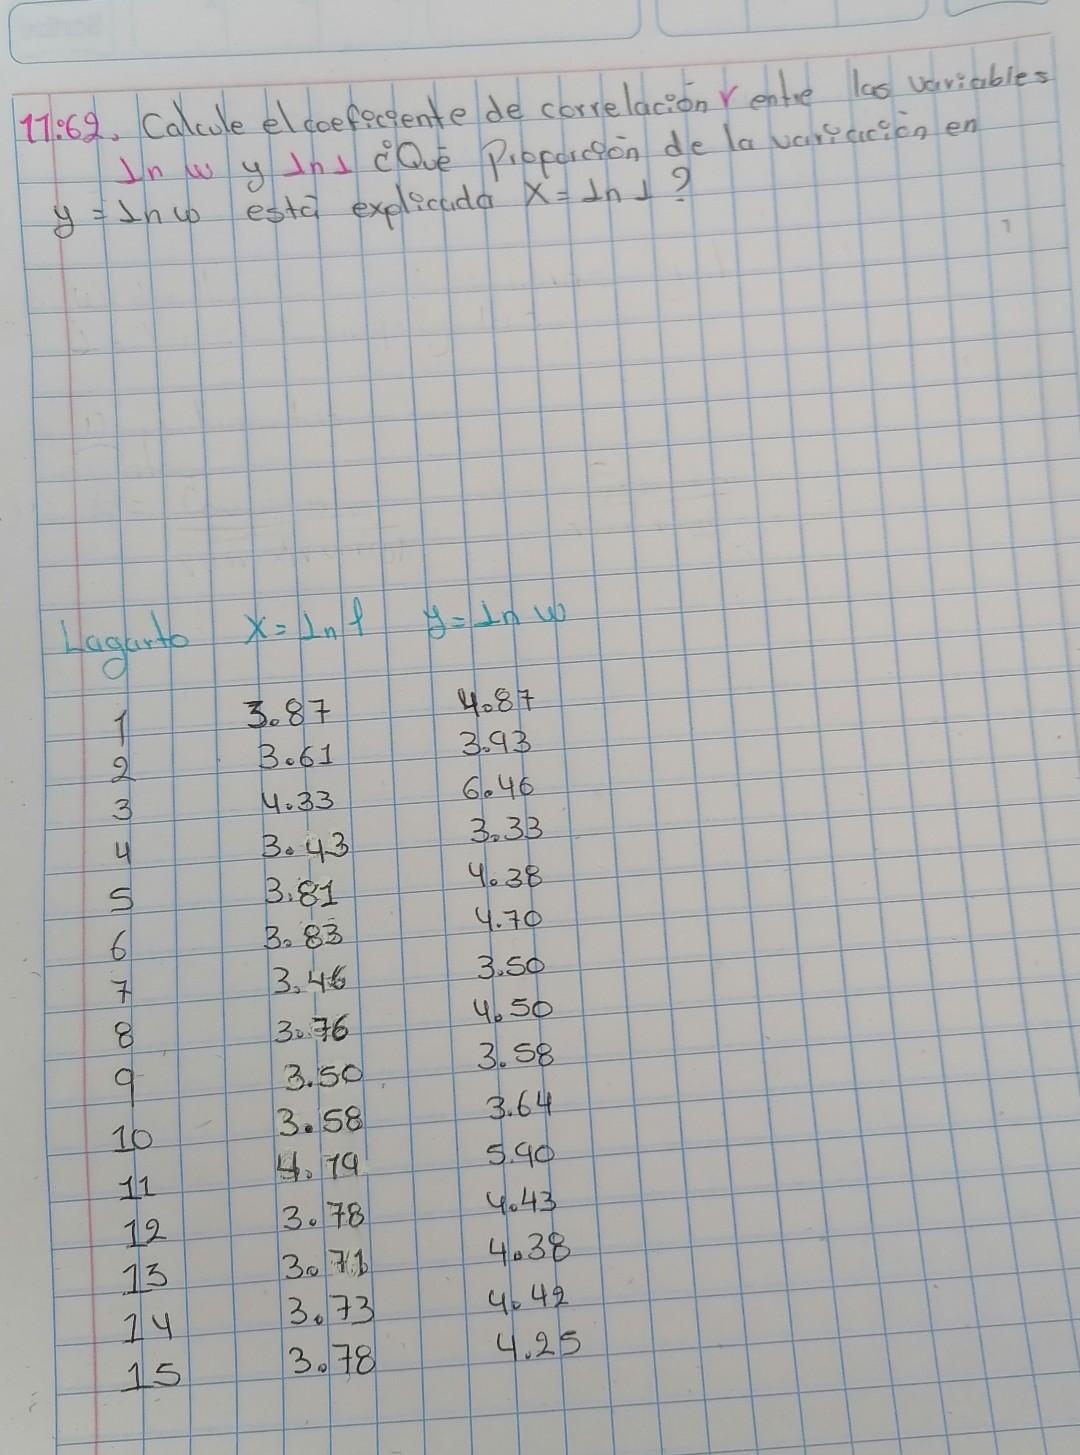 11.62. Calcule el coeficiente de correlación r entre las variables
In w y In l ¿Qué Proporción de la variación en
y = In w está explicada X = In l?
Lagarto X = In l y = In w
1 3.87 4.87
2 3.61 3.93
3 4.33 6.46
4 3.43 3.33
5 3.81 4.38
6 3.83 4.70
7 3.46 3.50
8 3.76 4.50
9 3.50 3.58
10 3.58 3.64
11 4.19 5.90
12 3.78 4.43
13 3.71 4.38
14 3.73 4.42
15 3.78 4.25